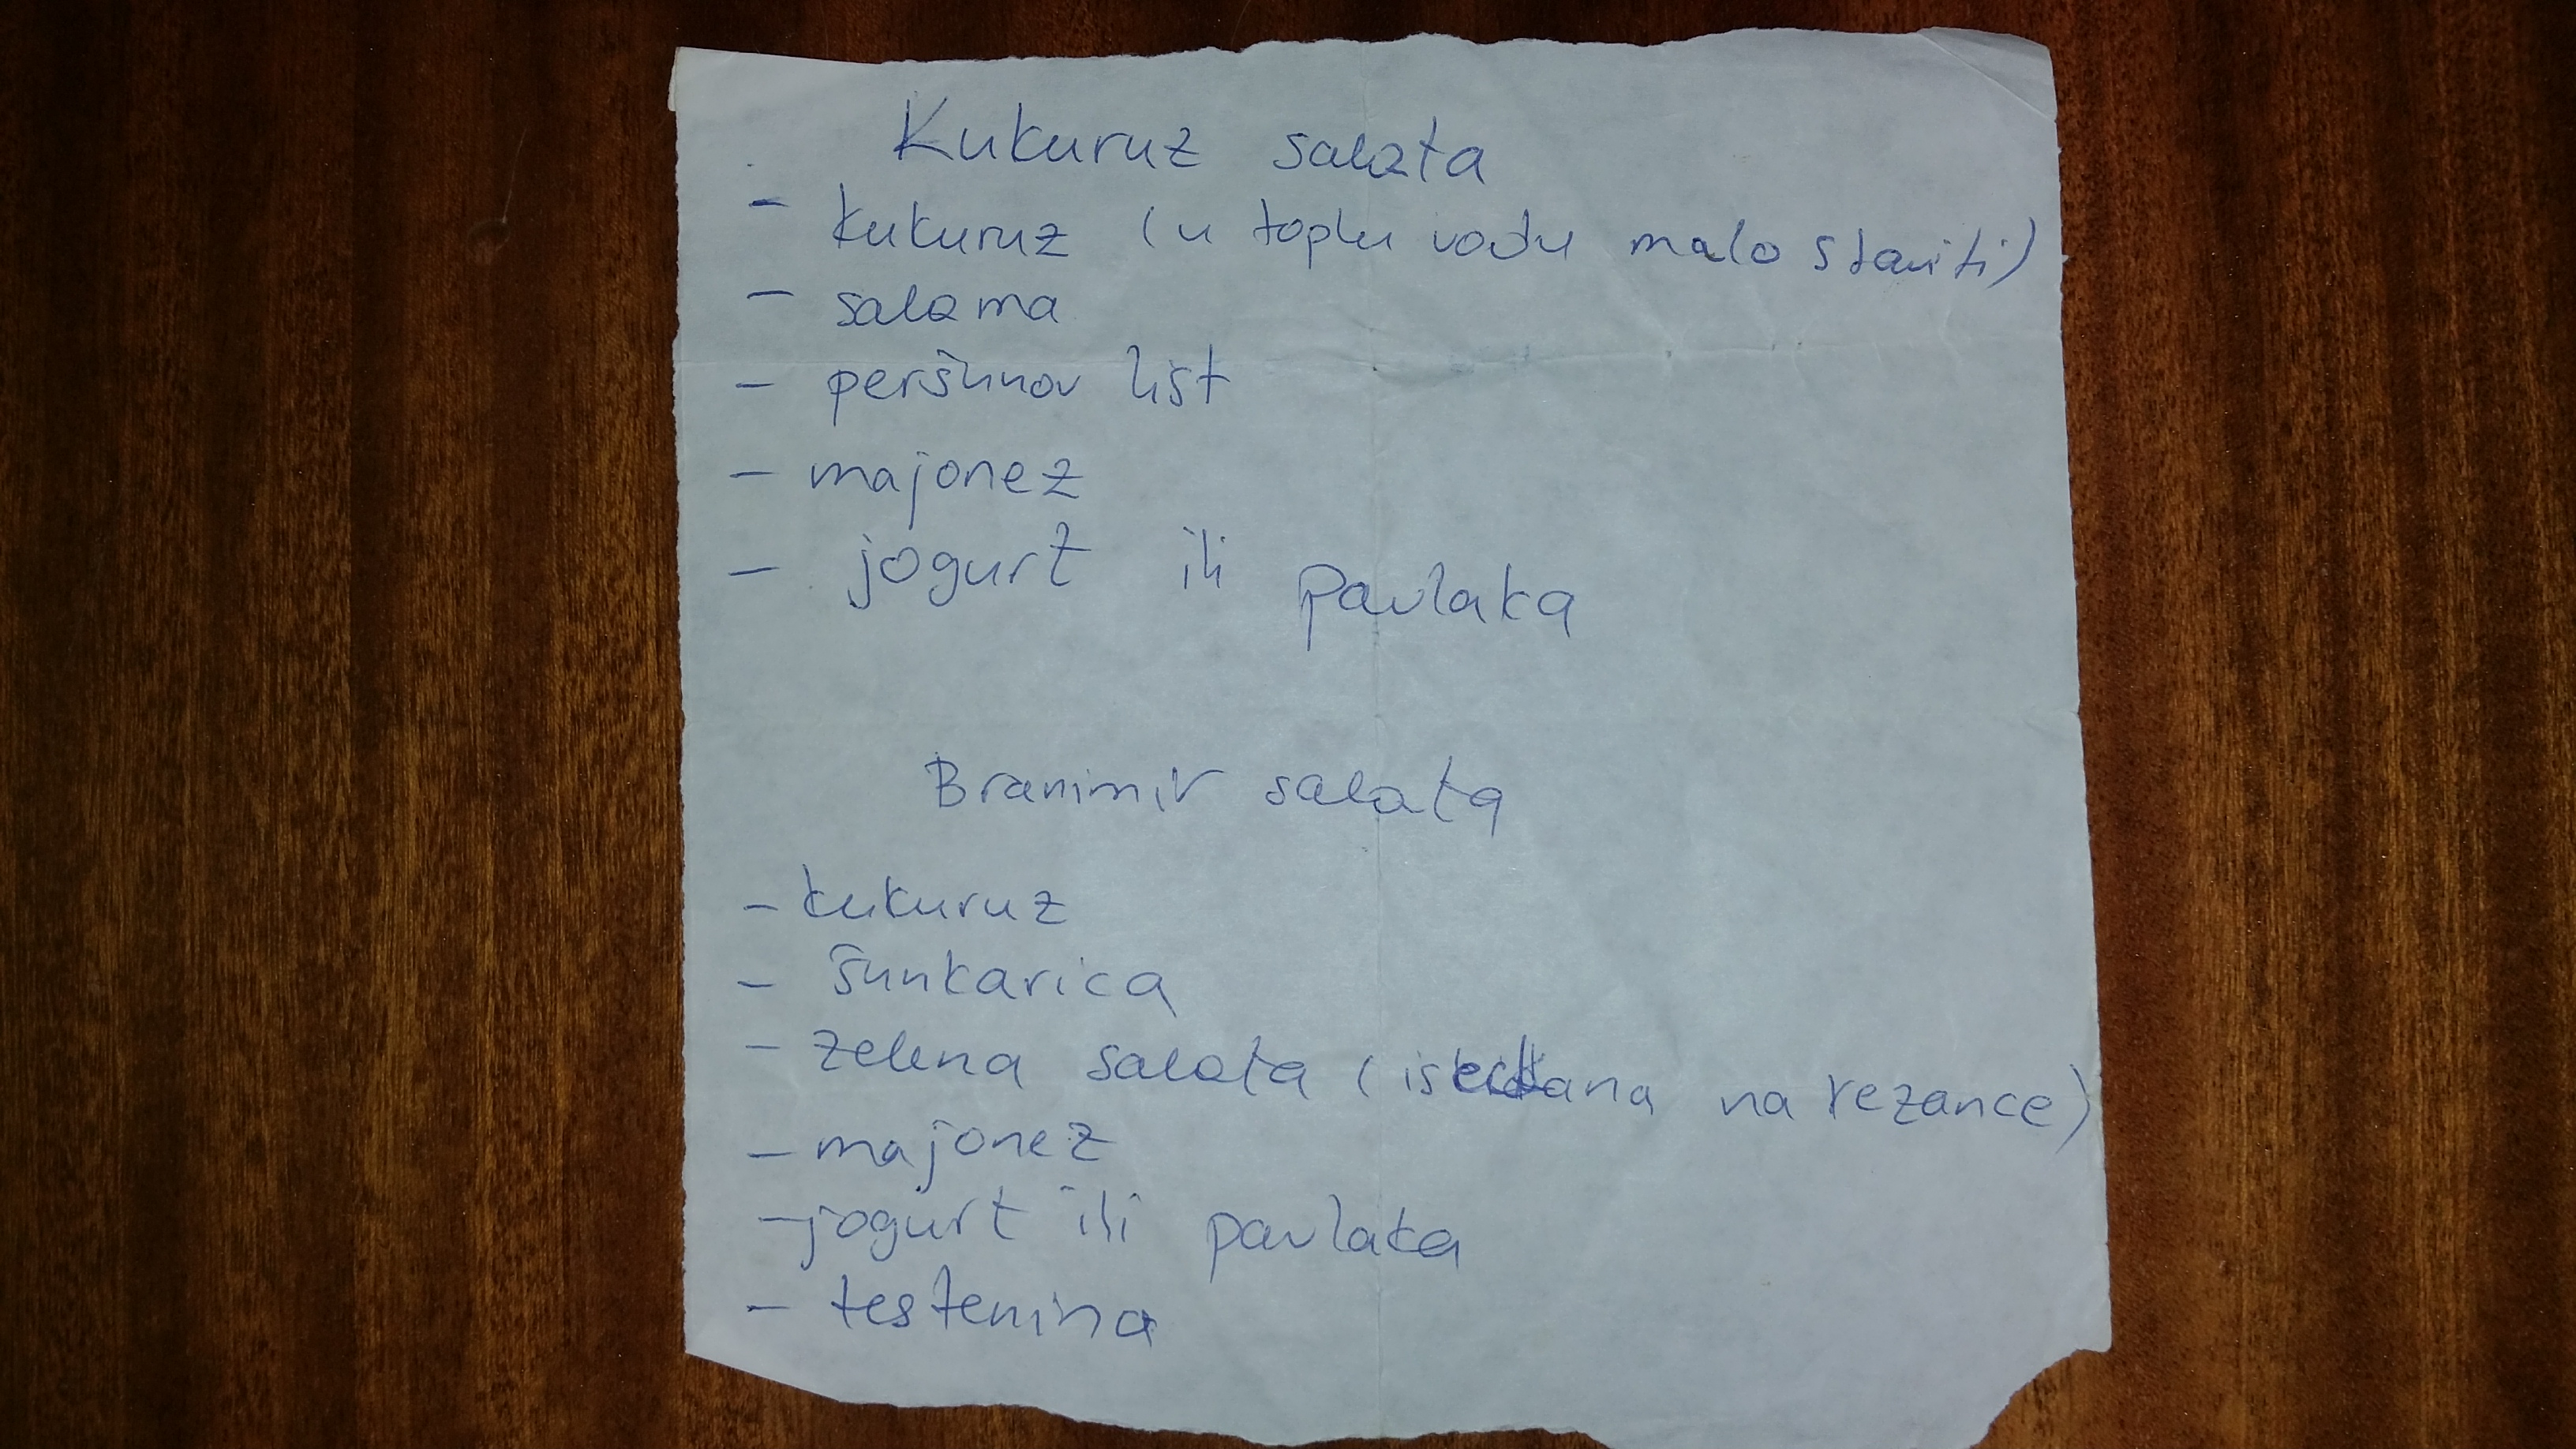 Kukuruz salata
- kukuruz (u toplu vodu malo staviti)
- salama
- peršinov list
- majonez
- jogurt ili pavlaka
Branimir salata
- kukuruz
- šunkarica
- zelena salata (na rezance)
- majonez
- jogurt ili pavlaka
- testenina